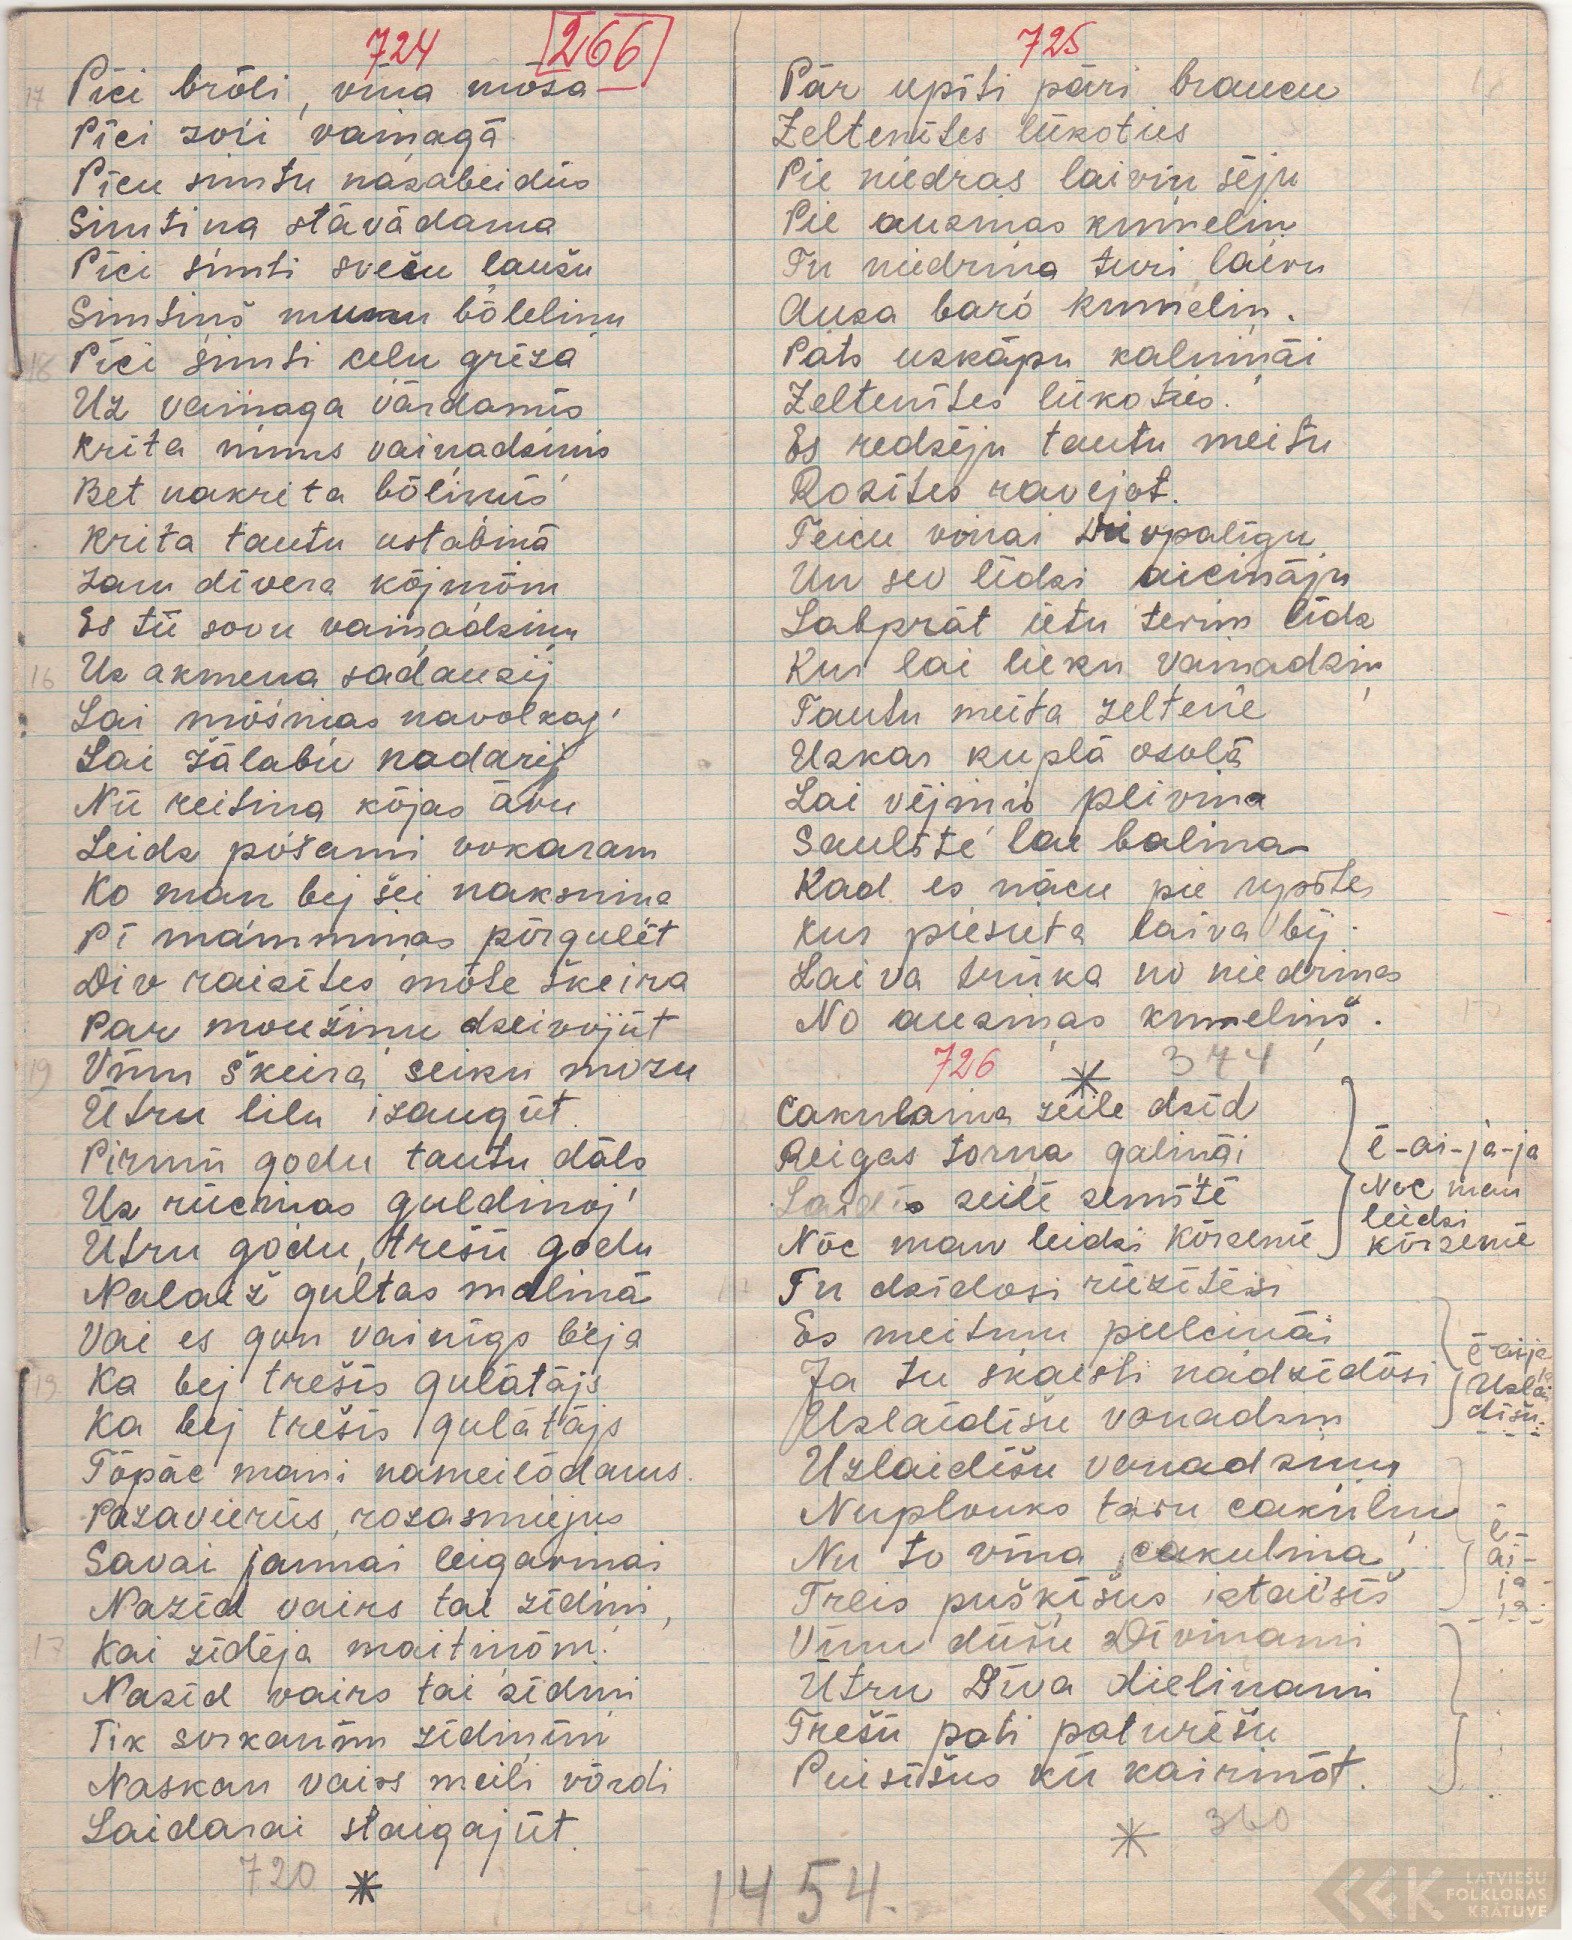 724 266
17 Pīci brōli, vīna mōsa
Pīci zori vainagā
Picu simtu nazabeidūs
Simtiņa stāvādama
Pīci simti svešu ļaužu
Simtiņš munu bōleliņu
16 Pīci simti ceļu grīza
Uz vainaga vārdamīs
Krita muns vainadziņis
Bet nakrita bōliņūs
Krita tautu ustabiņā
Zam dīvera kōjmōm
Es tū sovu vainadziņu
16 Uz akmeņa sadauzij
Lai mōsiņas navolkoj
Lai žālabu nadarij
Nū reitiņa kōjas āvu
Leidz pōšami vokaram
Ko man bej šei naksniņa
Pī māmmiņas pōrgulēt
Div raizītes mōte škeira
Par moužiņu dzeivojūt
19 Vīnu škeira seiku mozu
Ūtru lilu izaugūt.
Pirmū godu tautu dāls
Uz rūciņas guldinoj
Ūtru godu, trešū godu
Nalaiž gultas maliņā
Vai es gon vainīgs bēja
19 Ka bej trešīs gulātājs
Ka bej trešīs gulātājs
Tōpāc mani nameilōdams.
Pazavierūs, rozasmiejus
Savai jaunai leigaviņai
Nazīd vairs tai zīdiņi,
17 Kai zīdēja maitiņōm.
Nazīd vairs tai zīdiņi
Tik sorkanim zīdiņim
Naskan vairs meili vōrdi
Laidarai staigajūt.
720 *
725
Pār upīti pāri braucu
Zeltenītes lūkoties
Pie niedras laiviņ sēju
Pie auziņas kumeliņ
Tu niedriņa turi laivu
Auza baro kumeliņ.
Pats uzkāpu kalniņāi
Zeltenītes lūkoties.
Es redzēju tautu meitu
Rozītes ravējot.
Teicu viņai Dievpalīgu
Un sev līdzi aicināju
Labprāt ietu tevim līdz
Kur lai lieku vainadziņ
Tautu meita zeltenē
Uzkar kuplā osolā
Lai vējiņis plivina
Saulītē lai balina
Kad es nācu pie upītes
Kur piesieta laiva bij.
Laiva trūka no niedriņas
No auziņas kumeliņš.
726 * 344
Cakulaina zeile dzīd
Reigas torņa galiņāi
Laidīs zeile zemītē
Nōc man leidzi Kōrzemē
ē-ai-ja-ja
Nōc man
leidzi
kōrzemē
Tu dzīdosi rūzītēsi
Es meitiņu pulciņāi
Ja tu skaisti nadzīdōsi
Uzlaidīšu vonadziņ
ē-ai-ja
Uzlai
dīšu.
Uzlaidīšu vonadziņu
Nuplouks tovu cakūliņu
Nu to vīna cakuliņa
Treis puškīšus iztaisīš
ē-
ai-
ja-
ja-
Vīnu dūšu Dīviņami
Ūtru Dīva dieliņami
Trešū poti paturēšu
Puisīšus kū kairinōt.
* 360
1454.
LATVIEŠU
FOLKLORAS
KRĀTUVE